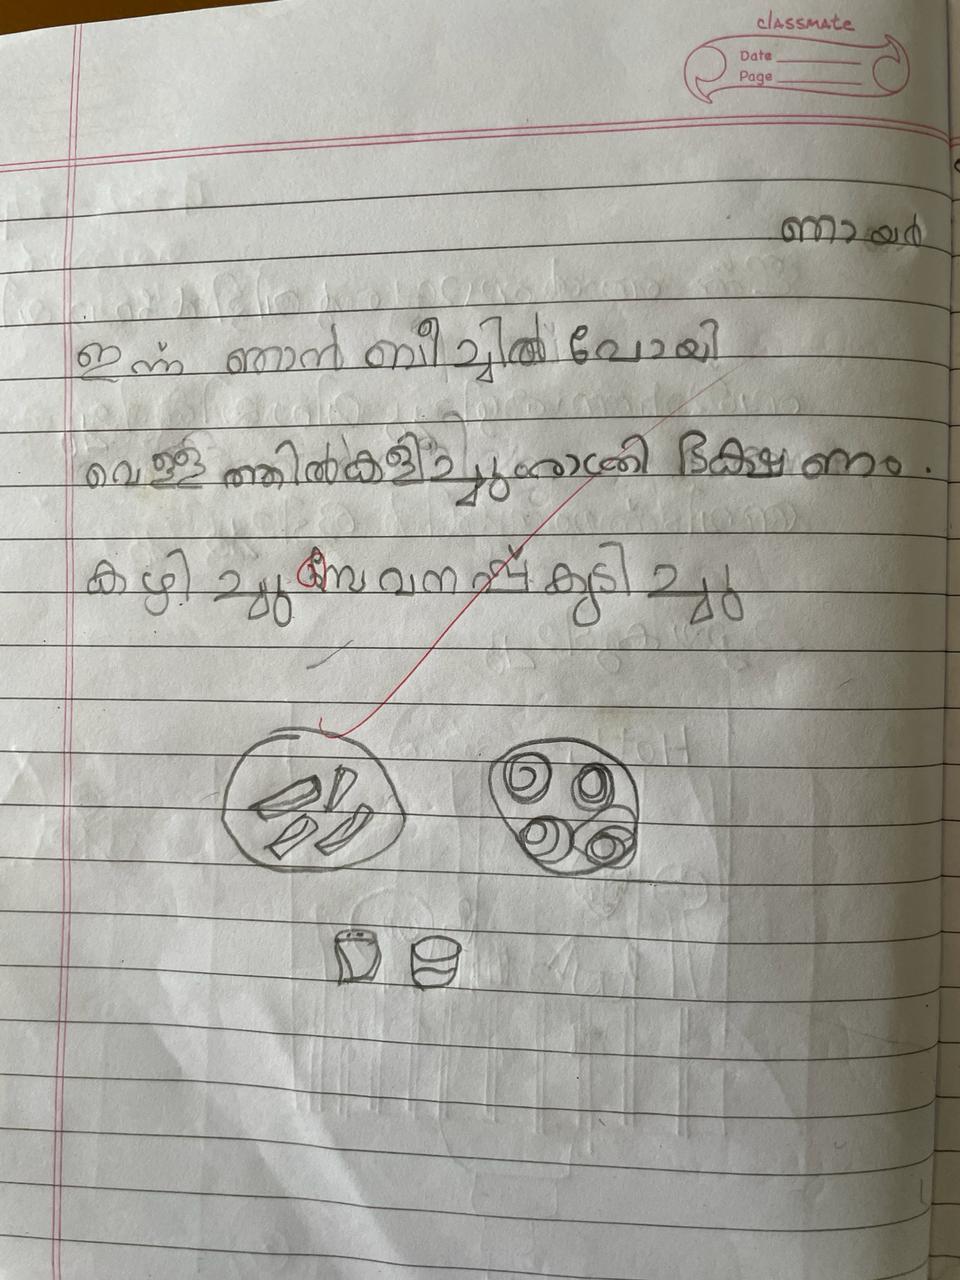 classmate
Date
Page
ഞായർ
ഇന്ന് ഞാൻ ബീച്ചിൽ പോയി
വെള്ളത്തിൽ കളിച്ചു രാത്രി ഭക്ഷണം.
കഴിച്ചു സേവനപ്പ് കുടിച്ചു